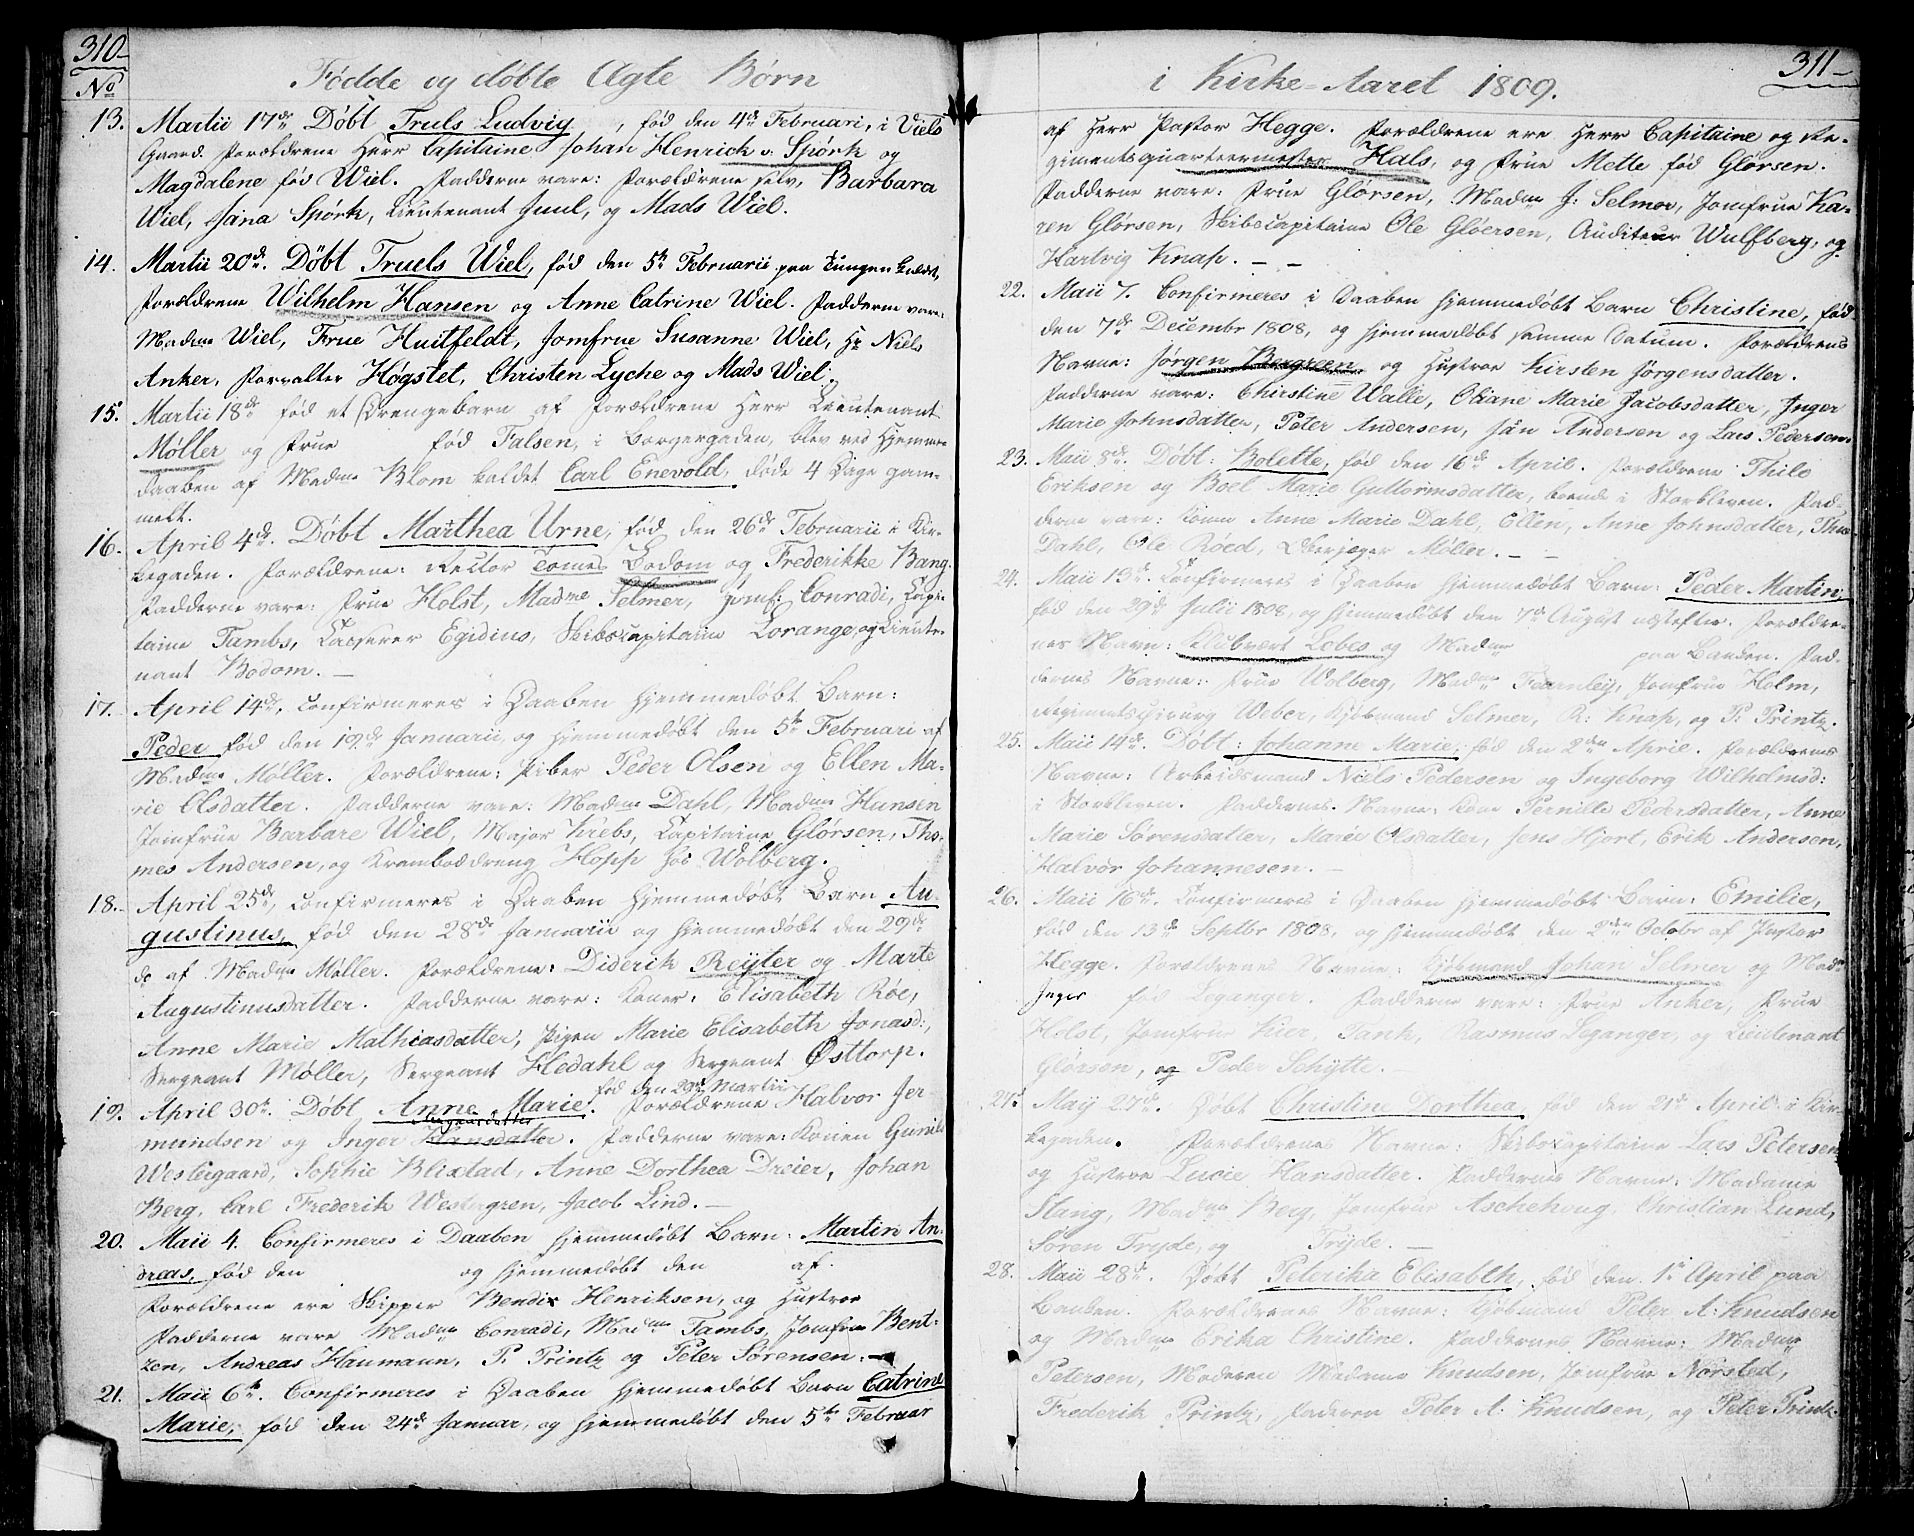 310
No
Fødde og døbte Ægte Børn
13. Martii 17de Døbt Truls Ludvig, fød den 4de Februari, i Wiels
Gaard. Forældrene Herr Capitaine Johan Henrick v. Spørk og
Magdalene fød Wiel. Fadderne vare: Forældrene selv, Barbara
Wiel, Jana Spørk, Lieutenant Juul, og Mads Wiel.
14. Martii 20de. Døbt Truels Wiel, fød den 5te Februarii paa
Forældrene Wilhelm Hansen og Anne Catrine Wiel. Fadderne vare:
Madme Wiel, Frue Huitfeldt, Jomfrue Susanne Wiel, Hr Niels
Anker, Forvalter Høgstet, Christen Lyche og Mads Wiel.
15. Martii 18de fød et Drengebarn af Forældrene Herr Lieutenant
Møller og Frue fød Falsen, i Borgergaden, blev ved Hjemme
Daaben af Madme Blom kaldet Carl Enevold, døde 4 Dage gam-
melt.
16. April 4de. Døbt Marthea Urne, fød den 26de Februarii i Kir-
kegaden. Forældrene: Rector Tomes Bodom og Frederikke Bang
Fadderne vare: Frue Holst, Madme Selmer, Jomf: Conradi, Capi-
taine Tambs, Casserer Egidius, Skibscapitaine Lorange, og Lieute-
nant Bodom. —
17. April 14de, Confirmeres i Daaben hjemmedøbt Barn:
Peder fød den 19de Januarii, og hjemmedøbt den 5te Februari af
Madme Møller. Forældrene: Peder Olsen og Ellen Ma-
rie Olsdatter. Fadderne vare: Madme Dahl, Madme Hansen
Jomfrue Barbare Wiel, Major Krebs, Capitaine Glørsen, Tho-
mes Andersen, og Kramboedreng Hopp hos Wolberg.
18. April 25de, Confirmeres i Daaben hjemmedøbt Barn Au-
gustinus, fød den 28de Januarii og hjemmedøbt den 29de
do af Madme Møller. Forældrene: Diderik Reyter og Marte
Augustinusdatter. Fadderne vare: Koner: Elisabeth Røe,
Anne Marie Mathiasdatter, Pigen Marie Elisabeth Jonasd:,
Sergeant Møller, Sergeant Hedahl og Sergeant Østtorp.
fød den 29de Martii
19. April 30te. Døbt Anne Marie. Forældrene Halvor Jer-
mundsen og Inger Hansdatter. Fadderne vare: Konen Gunild
Westergaard, Sophie Blixtad, Anne Dorthea Dreier, Johan
Berg, Carl Frederik Westergren, Jacob Lind. —
20. Maii 4. Confirmeres i Daaben hjemmedøbt Barn: Martin An-
dreas, fød den og hjemmedøbt den af.
Forældrene ere Skipper Bendix Henriksen, og Hustroe
Fadderne vare Madme Conradi, Madme Tambs, Jomfru Bent-
zen, Andreas Haumann, P. Printz og Peter Sørensen: —
21. Maii 6te. Confirmeres i Daaben hjemmedøbt Barn Catrine
Marie, fød den 24de Januar, og hjemmedøbt den 5te Februar
311
i Kirke-Aaret 1809.
af Herr Pastor Hegge. Forældrene ere Herr Capitaine og Re-
gimentsquarteermester Hals, og Frue Mette fød Glørsen.
Fadderne vare: Frue Glørsen, Madme J: Selmer, Jomfrue Ka-
ren Glørsen, Skibscapitaine Ole Gløersen, Auditeur Wulfberg, og
Hartvig Knap. — —
22. Maii 7. Confirmeres i Daaben hjemmedøbt Barn Christine, fød
den 7de Decembr 1808, og hjemmedøbt samme Datum. Forældrens
Navne: Jørgen Bergreen og Hustroe Kirsten Jørgensdatter.
Fadderne vare: Christine Walle, Oliane Marie Jacobsdatter, Inger
Marie Johnsdatter, Peter Andersen, Jan Andersen og Lars Pedersen.
23. Maii 8de. Døbt: Bolette, fød den 16de April. Forældrene Thilo
Eriksen og Boel Marie Guttormsdatter, boende i Storkleven. Fad-
derne vare: Konen Anne Marie Dahl, Ellen, Anne Johnsdatter,
Dahl, Ole Røed, Overjæger Møller. — —
24. Maii 13de. Confirmeres i Daaben hjemmedøbt Barn: Peder Martin,
fød den 29de Julii 1808, og hjemmedøbt den 7de August næstefter. Forældre-
nes Navn: Klubvært Lobes og Madme paa Banken. Fad-
dernes Navne: Frue Wolberg, Madme Fearnley, Jomfrue Holm,
Regimentschirurg Weber, Kjøbmand Selmer, R: Knap, og P. Printz.
25. Maii 14de. Døbt: Johanne Marie, fød den 2den April. Forældrens
Navne: Arbeidsmand Niels Pedersen og Ingeborg Wilhelmsd:
i Storkleven. Faddernes Navne: Kone Pernille Pedersdatter, Anne
Marie Sørensdatter, Marie Olsdatter, Jens Hjort, Erik Andersen,
Halvor Johannesen. —
26. Maii 16de. Confirmeres i Daaben hjemmedøbt Barn: Emilie,
fød den 13de Septbr 1808, og hjemmedøbt den 2den Octobr af Pastor
Hegge. Forældrenes Navne: Kjøbmand Johan Selmer og Madme
Inger fød Leganger. Fadderne vare: Frue Anker, Frue
Holst, Jomfrue Kier, Tank, Rasmus Leganger, og Lieutenant
Glørsen, og Peder Schytte. —
27. Maij 27de. Døbt Christine Dorthea, fød den 21de April i Kir-
kegaden. Forældrenes Navne: Skibscapitaine Lars Petersen
og Hustroe Lucie Hansdatter. Faddernes Navne: Madame
Stang, Madme Berg, Jomfrue Aschehoug, Christian Lund,
Søren Tryde, og Tryde. —
28. Maii 28de. Døbt Peterika Elisabeth, fød den 1te April paa
Banken. Forældrenes Navne: Kjøbmand Peter A: Knudsen
og Madme Erika Christine. Faddernes Navne: Madme
Petersen, Moderen Madame Knudsen, Jomfrue Norsted,
Frederik Printz, Faderen Peter A. Knudsen, og Peter Printz.